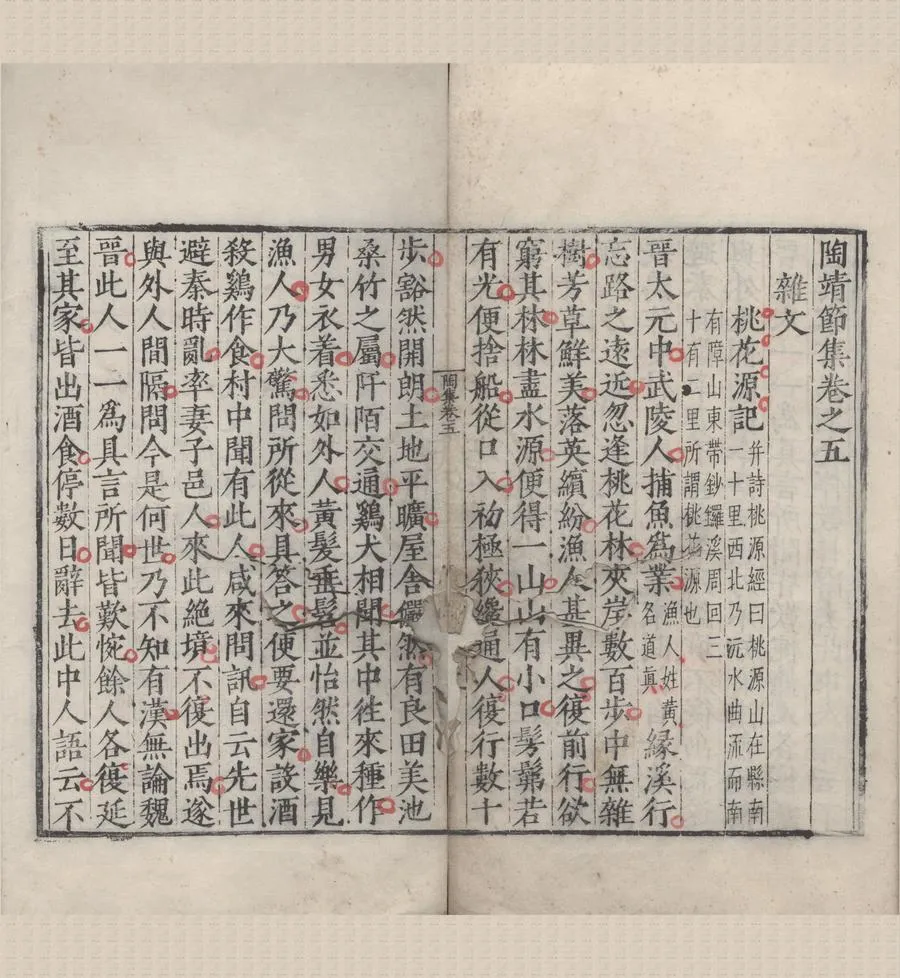 陶靖節集卷之五
雜文
桃花源記并詩桃源經曰桃源山在縣南
一十里西北乃沅水曲流而南
有障山東帶鈔鑼溪周回三
十有二里所謂桃花源也
晉太元中武陵人捕魚爲業漁人姓黃名道眞緣溪行
忘路之遠近忽逢桃花林夾岸數百步中無雜
樹芳草鮮美落英繽紛漁人甚異之復前行欲
窮其林林盡水源便得一山山有小口髣髴若
有光便捨船從口入初極狹纔通人復行數十
陶集卷五
步豁然開朗土地平曠屋舍儼然有良田美池
桑竹之屬阡陌交通鷄犬相聞其中徃來種作
男女衣着悉如外人黃髮垂髫並怡然自樂見
漁人乃大驚問所從來具答之便要還家設酒
殺鷄作食村中聞有此人咸來問訊自云先世
避秦時亂率妻子邑人來此絕境不復出焉遂
與外人間隔問今是何世乃不知有漢無論魏
晉此人一一爲具言所聞皆歎惋餘人各復延
至其家皆出酒食停數日辭去此中人語云不